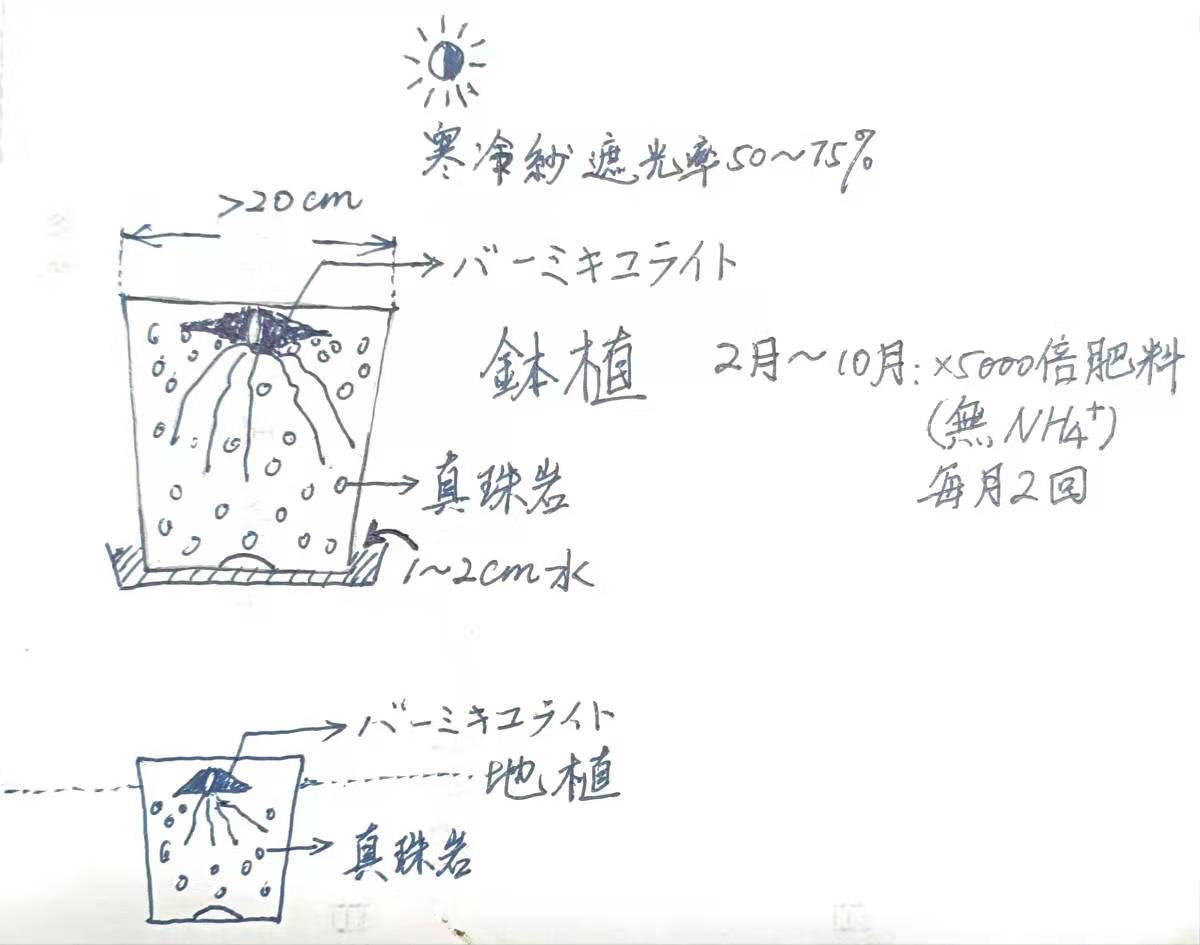 寒冷紗遮光率50～75%
>20cm
バーミキユライト
鉢植
2月～10月:×5000倍肥料
(無NH₄⁺)
毎月2回
真珠岩
1～2cm水
バーミキユライト
地植
真珠岩